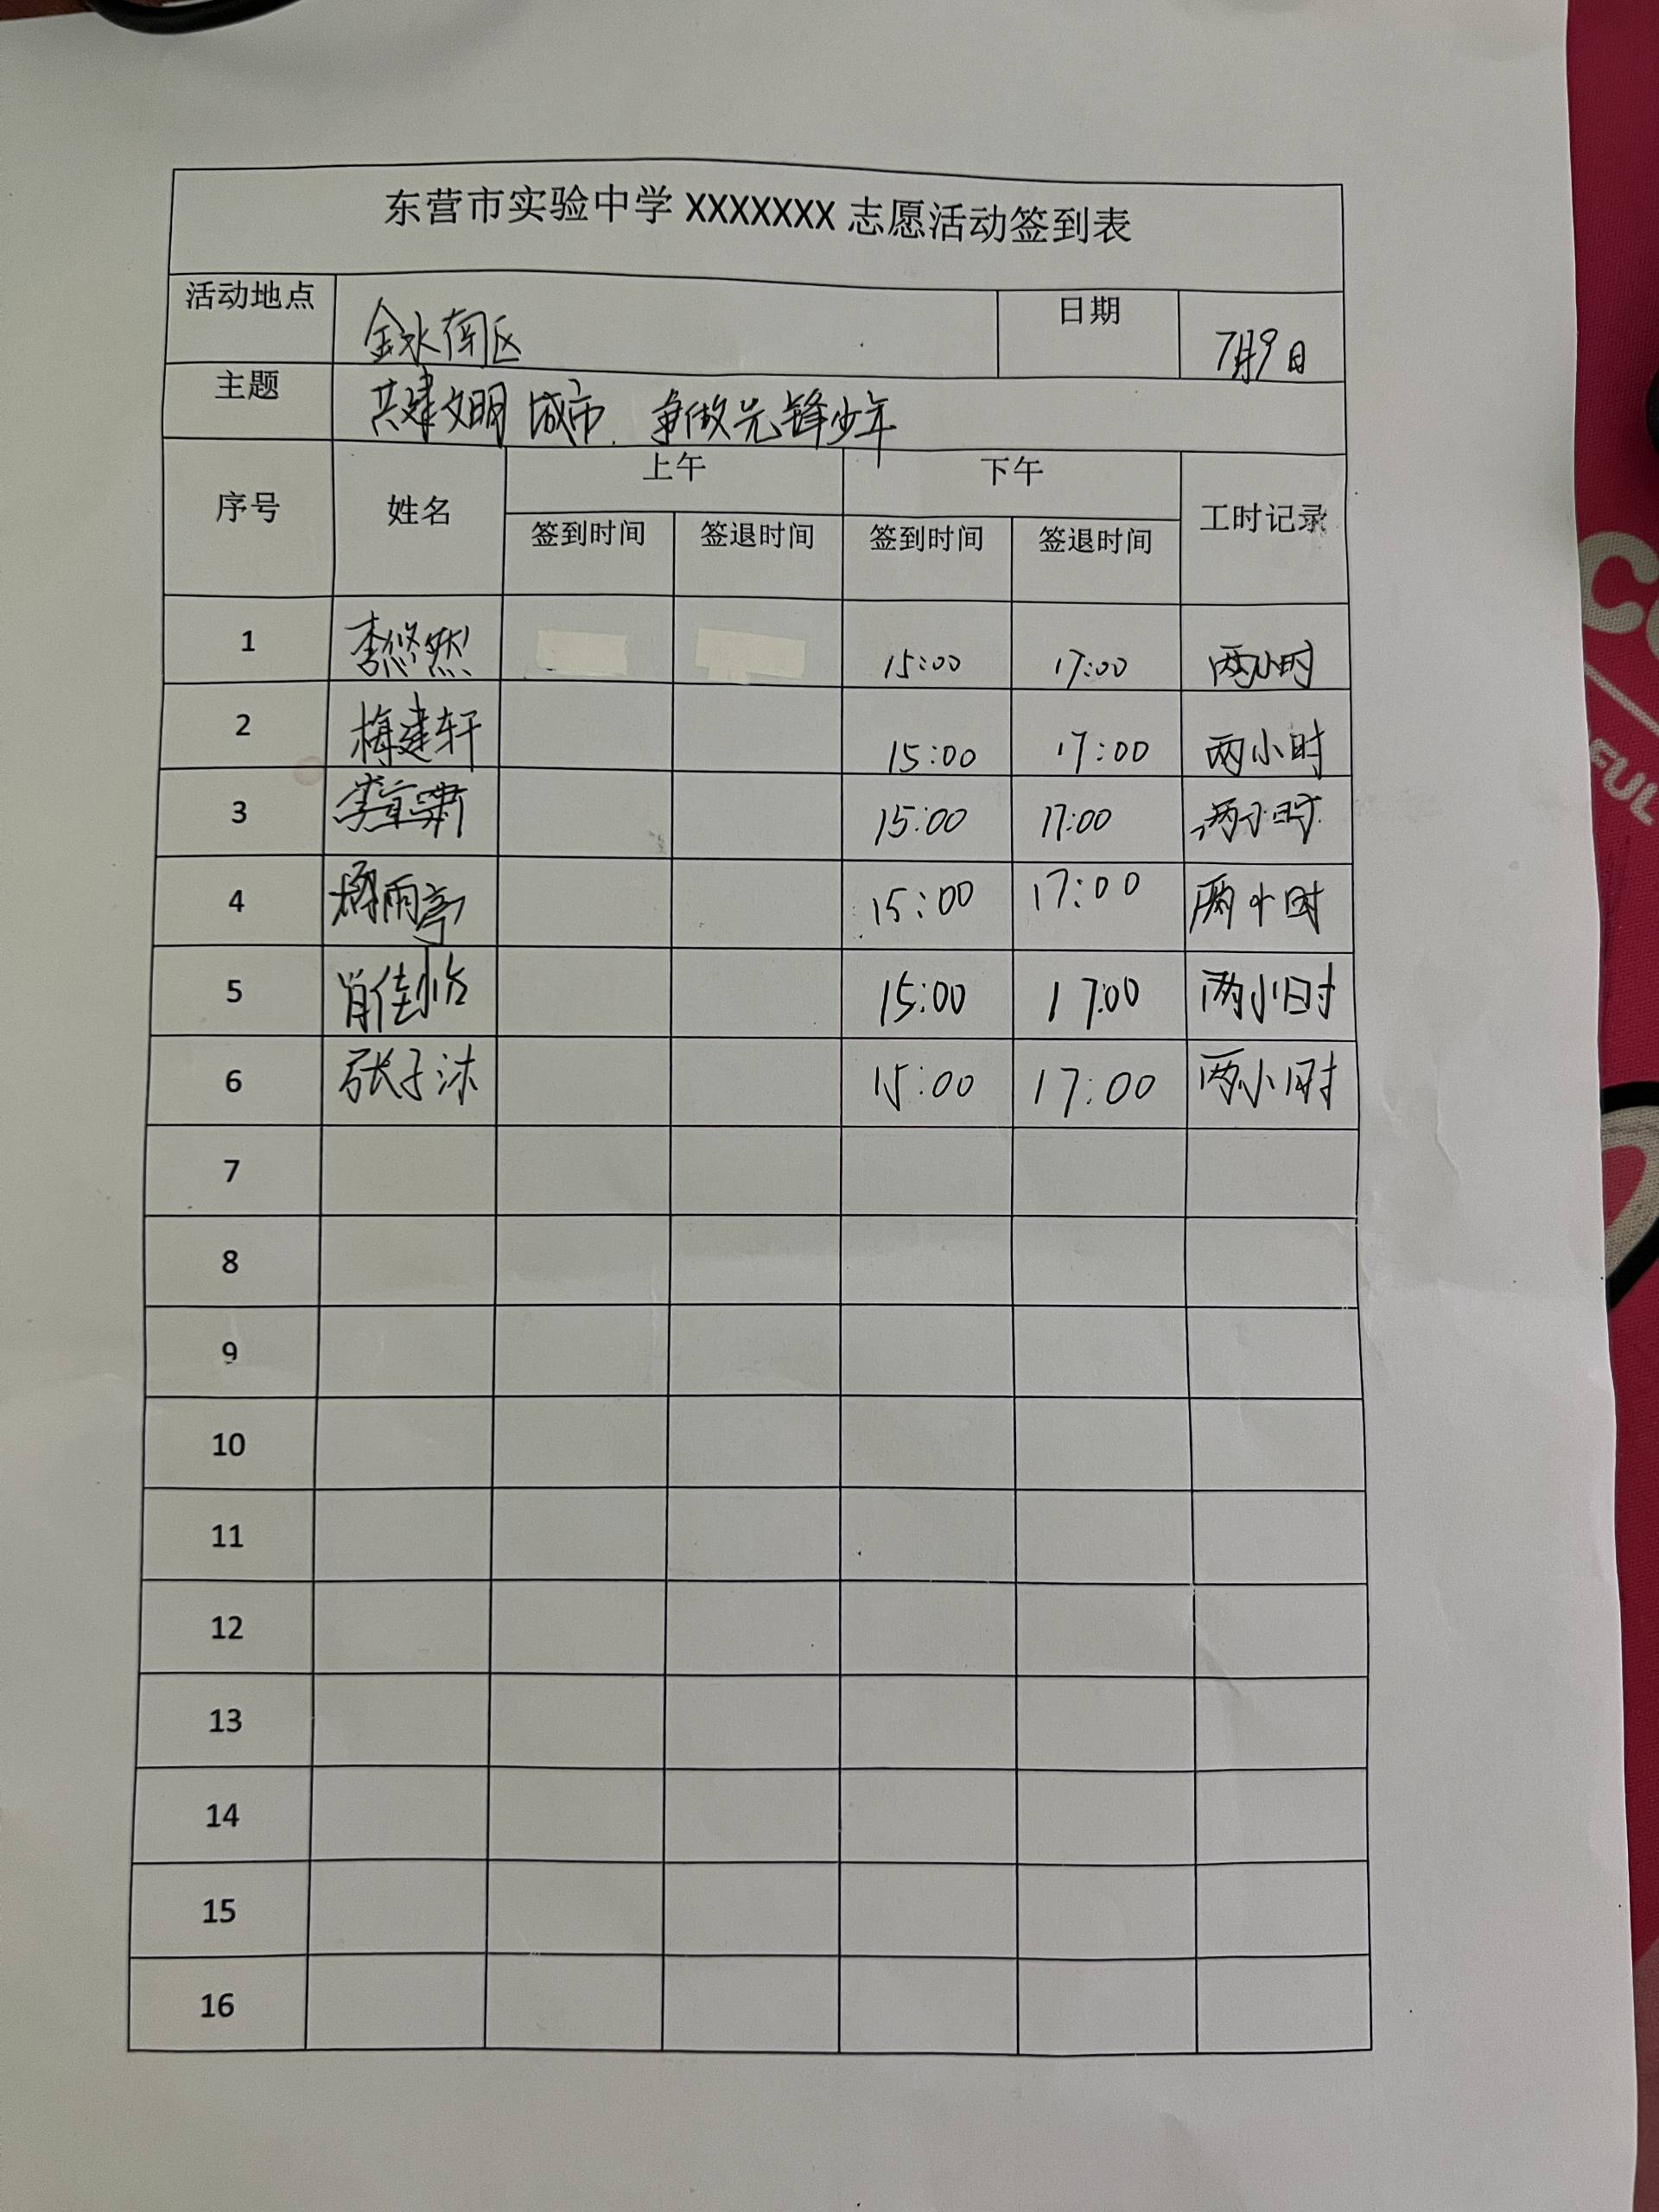 东营市实验中学 XXXXXXX 志愿活动签到表
活动地点 金水南区 日期 7月9日
主题 共建文明城市.争做先锋少年
序号 姓名 上午 下午 工时记录
签到时间 签退时间 签到时间 签退时间
1 李悠然 15:00 17:00 两小时
2 梅建轩 15:00 17:00 两小时
3 15:00 17:00 两小时
4 杨雨亭 15:00 17:00 两小时
5 肖佳怡 15:00 17:00 两小时
6 张子沐 15:00 17:00 两小时
7
8
9
10
11
12
13
14
15
16
FUL